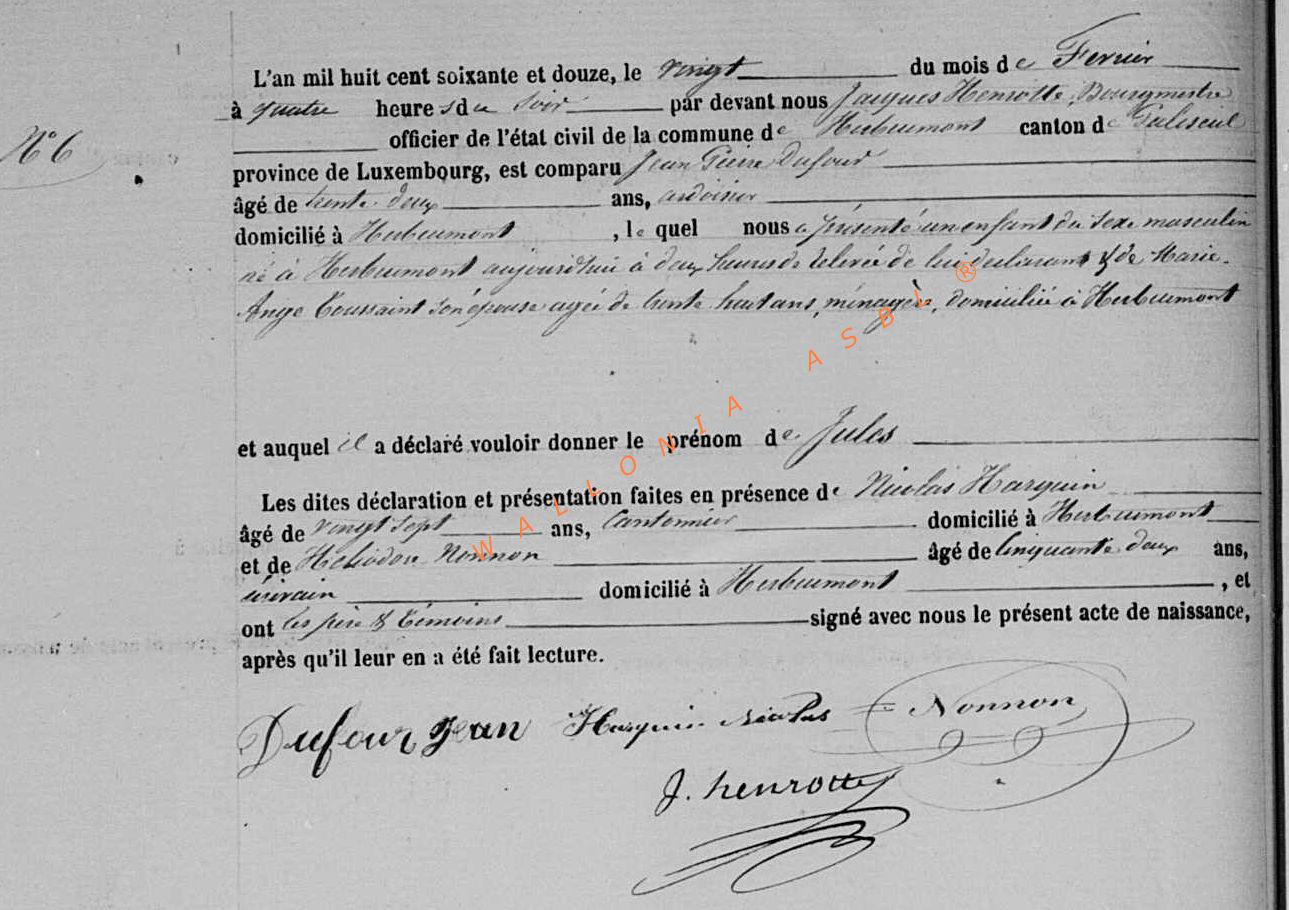 L'an mil huit cent soixante et douze, le vingt du mois de Fevrier
à quatre heures du soir par devant nous Jacques Henrotte, Bourgmestre
N° 6
officier de l'état civil de la commune de Herbeumont canton de Paliseul
province de Luxembourg, est comparu Jean Pierre Dufour
âgé de trente deux ans, ardoisier
domicilié à Herbeumont, le quel nous a présenté un enfant du sexe masculin
né à Herbeumont aujourd'hui à deux heures de relevée de lui déclarant & de Marie-
Ange Toussaint son épouse agée de trente huit ans, ménagère, domiciliée à Herbeumont
et auquel il a déclaré vouloir donner le prénom de Jules
Les dites déclaration et présentation faites en présence de Nicolas Harquin
âgé de vingt sept ans, Cantonnier domicilié à Herbeumont
et de Héliodore Nonnon âgé de cinquante deux ans,
écrivain domicilié à Herbeumont, et
ont les père & témoins signé avec nous le présent acte de naissance,
après qu'il leur en a été fait lecture.
Dufour Jean Harquin Nicolas Nonnon
J. henrotte
WALLONIA ASBL ®